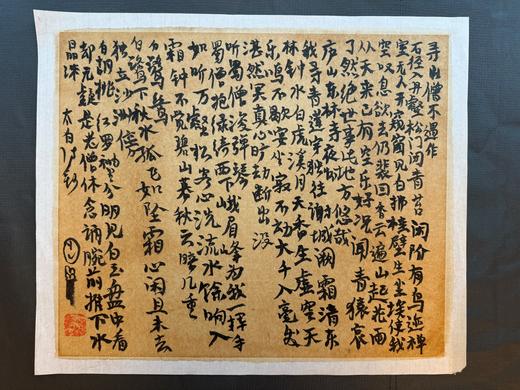 寻山僧不遇作
石径入丹壑松门闭青苔闲阶有鸟迹禅
室无人开窥窗见白拂挂壁生尘埃使我
空叹息欲去仍裴回香云遍山起花雨
从天来已有空乐好况闻青猿哀
了然绝世事此地方悠哉
庐山东林寺夜怀
我寻青莲宇独往谢城阙霜清东
林钟水白虎溪月天香生虚空天
乐鸣不歇宴坐寂不动大千入毫发
湛然冥真心旷劫断出没
听蜀僧浚弹琴
蜀僧抱绿绮西下峨眉峰为我一挥手
如听万壑松客心洗流水馀响入
霜钟不觉碧山暮秋云暗几重
白鹭鸶
白鹭下秋水孤飞如坠霜心闲且未去
独立沙洲傍
白胡桃 红罗袖里分明见白玉盘中看
却无疑是老僧休念诵腕前推下水
晶珠 太白